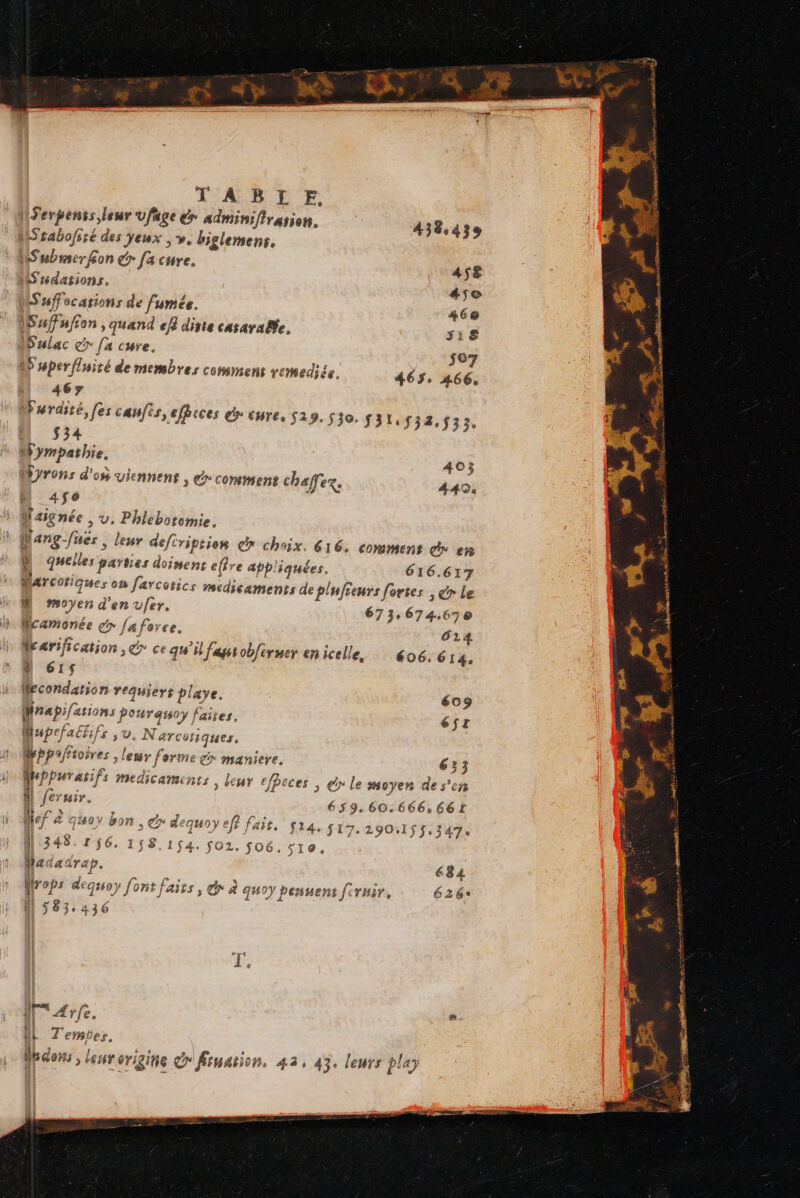 TABLE.
Serpens, leur vſage & adminiſtration. 438.439
Staboſité des yeux, v. biglement.
Submerſion & ſa cure. 458
Sudations. 450
Suffocations de fumée. 460
Suffuſion, quand eſt diste cataracte. 518
Sulac & ſa cure. 507
Superfluité de membres comment remediée. 465. 466.
467
Surdité, ſes cauſes, eſpeces & cure. 529. 530. 531. 532. 533.
534
Sympathie. 403
Syrons d'où viennent, & comment chaſſez. 440.
450
aignée, v. Phlebotomie.
ang-ſues, leur deſcription & choix. 616. comment & en
quelles parties doiuent eſtre appliquées. 616.617
arcotiques ou ſarcotics medicaments de pluſieurs ſortes, & le
moyen d'en vſer. 673.674.670
camonée & ſa force. 624
carification, & ce qu'il faut obſeruer en icelle, 606. 614.
615
econdation requiert playe. 609
inapiſations pourquoy faites. 651
upefactifs, v. Narcotiques.
uppoſitoires, leur forme & maniere. 633
uppuratifs medicaments, leur eſpeces, & le moyen de s'en
ſeruir. 659. 60. 666. 661
ief à quoy bon, & dequoy eſt fait. 514. 517. 290.155.347.
348. 156. 158. 154. 502. 506. 510.
adadrap. 684
irops dequoy ſont faits, & à quoy peuuent ſeruir. 626.
583.436
T.
Arſe.
Temper.
ndons, leur origine & ſituation. 42. 43. leurs play